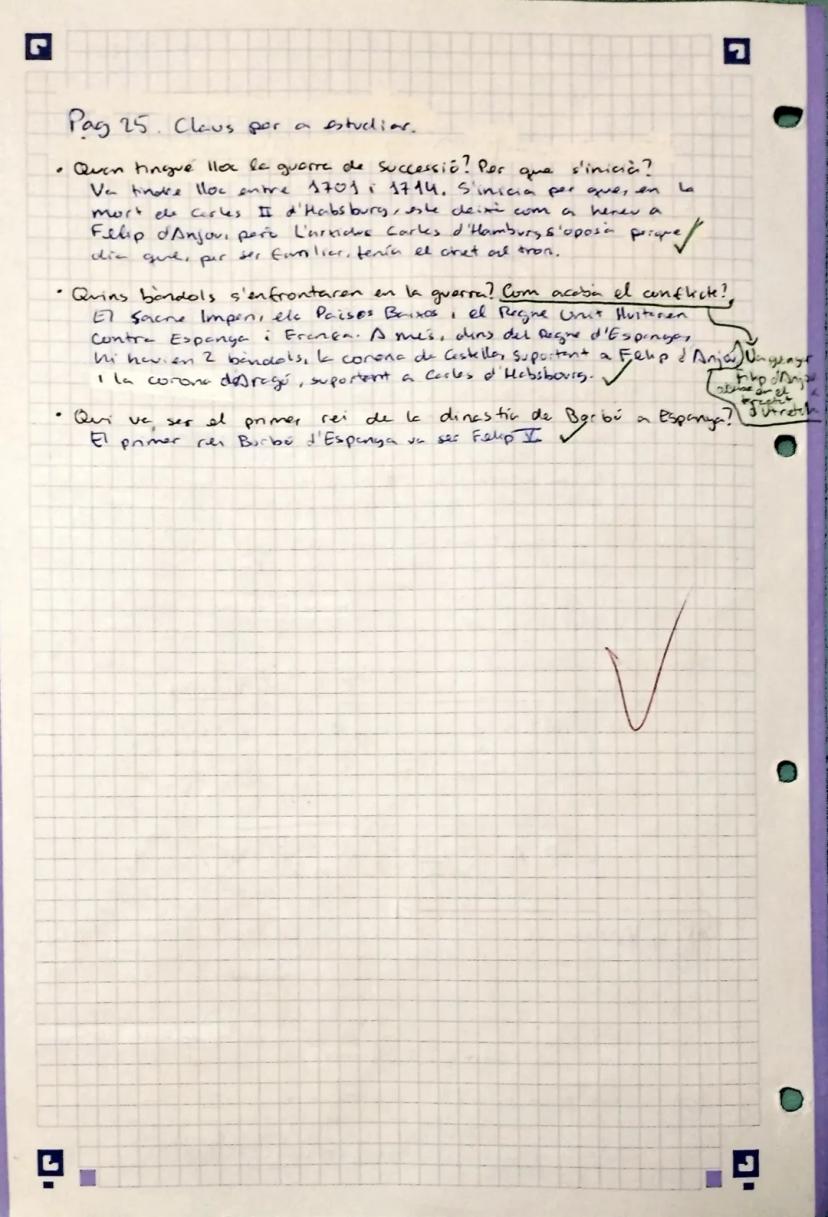 Pag 25. Claus per a estudiar.
• Quan tingué lloc la guerra de successió? Per que s'inicià?
Va tindre lloc entre 1701 i 1714. S'inicia per que, en la
mort de Carles II d'Habsburg, este deixà com a hereu a
Felip d'Anjou, però l'arxiduc Carles d'Hamburg s'oposà perque
dia que, per ser familiar, tenía el dret al tron.
• Quins bàndols s'enfrontaren en la guerra? Com acaba el conflicte?
El Sacre Imperi, els Països Baixos i el Regne Unit lluitaren
contra Espanya i França. A més, dins del Regne d'Espanya,
hi havien 2 bàndols, la corona de Castella, suportant a Felip d'Anjou
i la corona d'Aragó, suportant a Carles d'Habsbourg.
Va guanyar
Felip d'Anjou
en el
tractat
d'Utrech
• Qui va ser el primer rei de la dinastía de Borbó a Espanya?
El primer rei Borbó d'Espanya va ser Felip V.